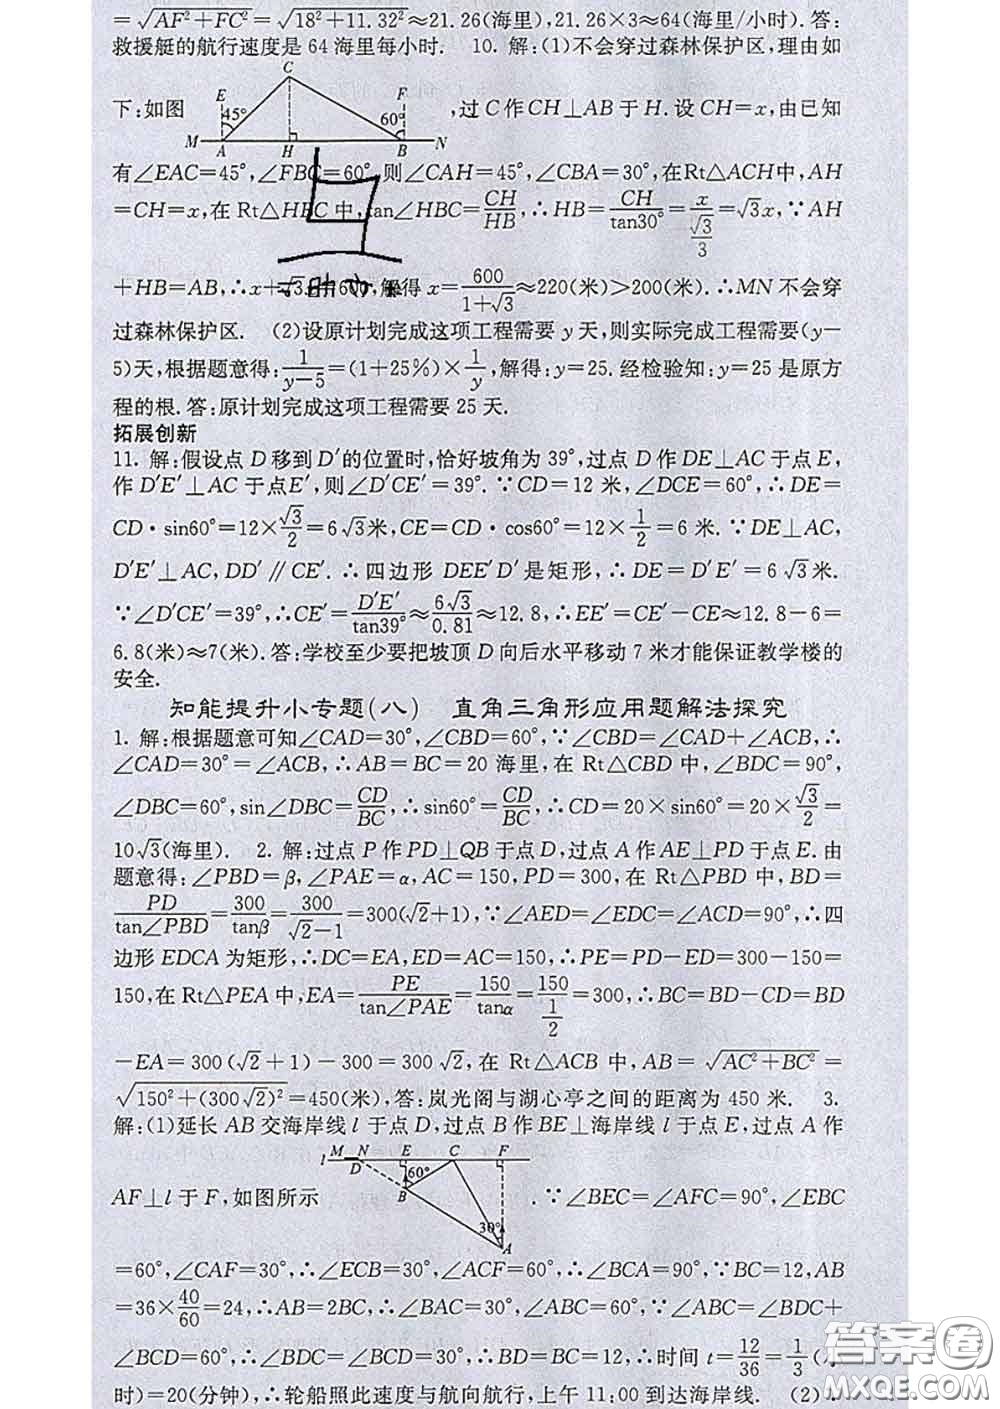 =√(AF²+FC²)=√(18²+11.32²)≈21.26(海里),21.26×3≈64(海里/小时).答:
救援艇的航行速度是 64 海里每小时. 10. 解:(1)不会穿过森林保护区,理由如
下:如图
C
E
F
45°
60°
M
A
H
B
N
,过 C 作 CH⊥AB 于 H. 设 CH=x,由已知
有∠EAC=45°,∠FBC=60°,则∠CAH=45°,∠CBA=30°,在Rt△ACH中,AH
=CH=x,在 Rt△HBC 中,tan∠HBC=CH/HB,∴HB=CH/tan30°=x/(√3/3)=√3x,∵AH
+HB=AB,∴x+√3x=600,解得 x=600/(1+√3)≈220(米)>200(米).∴MN 不会穿
过森林保护区. (2)设原计划完成这项工程需要 y 天,则实际完成工程需要(y−
5)天,根据题意得:1/(y−5)=(1+25%)×1/y,解得:y=25.经检验知:y=25 是原方
程的根.答:原计划完成这项工程需要 25 天.
拓展创新
11. 解:假设点 D 移到 D′的位置时,恰好坡角为 39°,过点 D 作 DE⊥AC 于点 E,
作 D′E′⊥AC 于点E′,则∠D′CE′=39°.∵CD=12 米,∠DCE=60°,∴DE=
CD·sin60°=12×√3/2=6√3米,CE=CD·cos60°=12×1/2=6 米.∵DE⊥AC,
D′E′⊥AC,DD′∥CE′.∴四边形 DEE′D′是矩形,∴DE=D′E′=6√3米.
∵∠D′CE′=39°,∴CE′=D′E′/tan39°≈6√3/0.81≈12.8,∴EE′=CE′−CE≈12.8−6=
6.8(米)≈7(米).答:学校至少要把坡顶 D 向后水平移动 7 米才能保证教学楼的
安全.
知能提升小专题(八) 直角三角形应用题解法探究
1. 解:根据题意可知∠CAD=30°,∠CBD=60°,∵∠CBD=∠CAD+∠ACB,∴
∠CAD=30°=∠ACB,∴AB=BC=20 海里,在 Rt△CBD 中,∠BDC=90°,
∠DBC=60°,sin∠DBC=CD/BC,∴sin60°=CD/BC,∴CD=20×sin60°=20×√3/2=
10√3(海里). 2. 解:过点 P 作 PD⊥QB 于点 D,过点 A 作 AE⊥PD 于点 E.由
题意得:∠PBD=β,∠PAE=α,AC=150,PD=300,在 Rt△PBD 中,BD=
PD/tan∠PBD=300/tanβ=300/(√2−1)=300(√2+1),∵∠AED=∠EDC=∠ACD=90°,∴四
边形 EDCA 为矩形,∴DC=EA,ED=AC=150,∴PE=PD−ED=300−150=
150,在 Rt△PEA 中,EA=PE/tan∠PAE=150/tanα=150/(1/2)=300,∴BC=BD−CD=BD
−EA=300(√2+1)−300=300√2,在 Rt△ACB 中,AB=√(AC²+BC²)=
√(150²+(300√2)²)=450(米),答:岚光阁与湖心亭之间的距离为 450 米. 3.
解:(1)延长 AB 交海岸线 l 于点 D,过点 B 作 BE⊥海岸线 l 于点 E,过点 A 作
AF⊥l 于 F,如图所示
l
M
N
D
E
C
F
60°
B
30°
A
.∵∠BEC=∠AFC=90°,∠EBC
=60°,∠CAF=30°,∴∠ECB=30°,∠ACF=60°,∴∠BCA=90°,∵BC=12,AB
=36×40/60=24,∴AB=2BC,∴∠BAC=30°,∠ABC=60°,∵∠ABC=∠BDC+
∠BCD=60°,∴∠BDC=∠BCD=30°,∴BD=BC=12,∴时间 t=12/36=1/3(小
时)=20(分钟),∴轮船照此速度与航向航行,上午 11:00 到达海岸线. (2)
答案圈
MXQE.COM